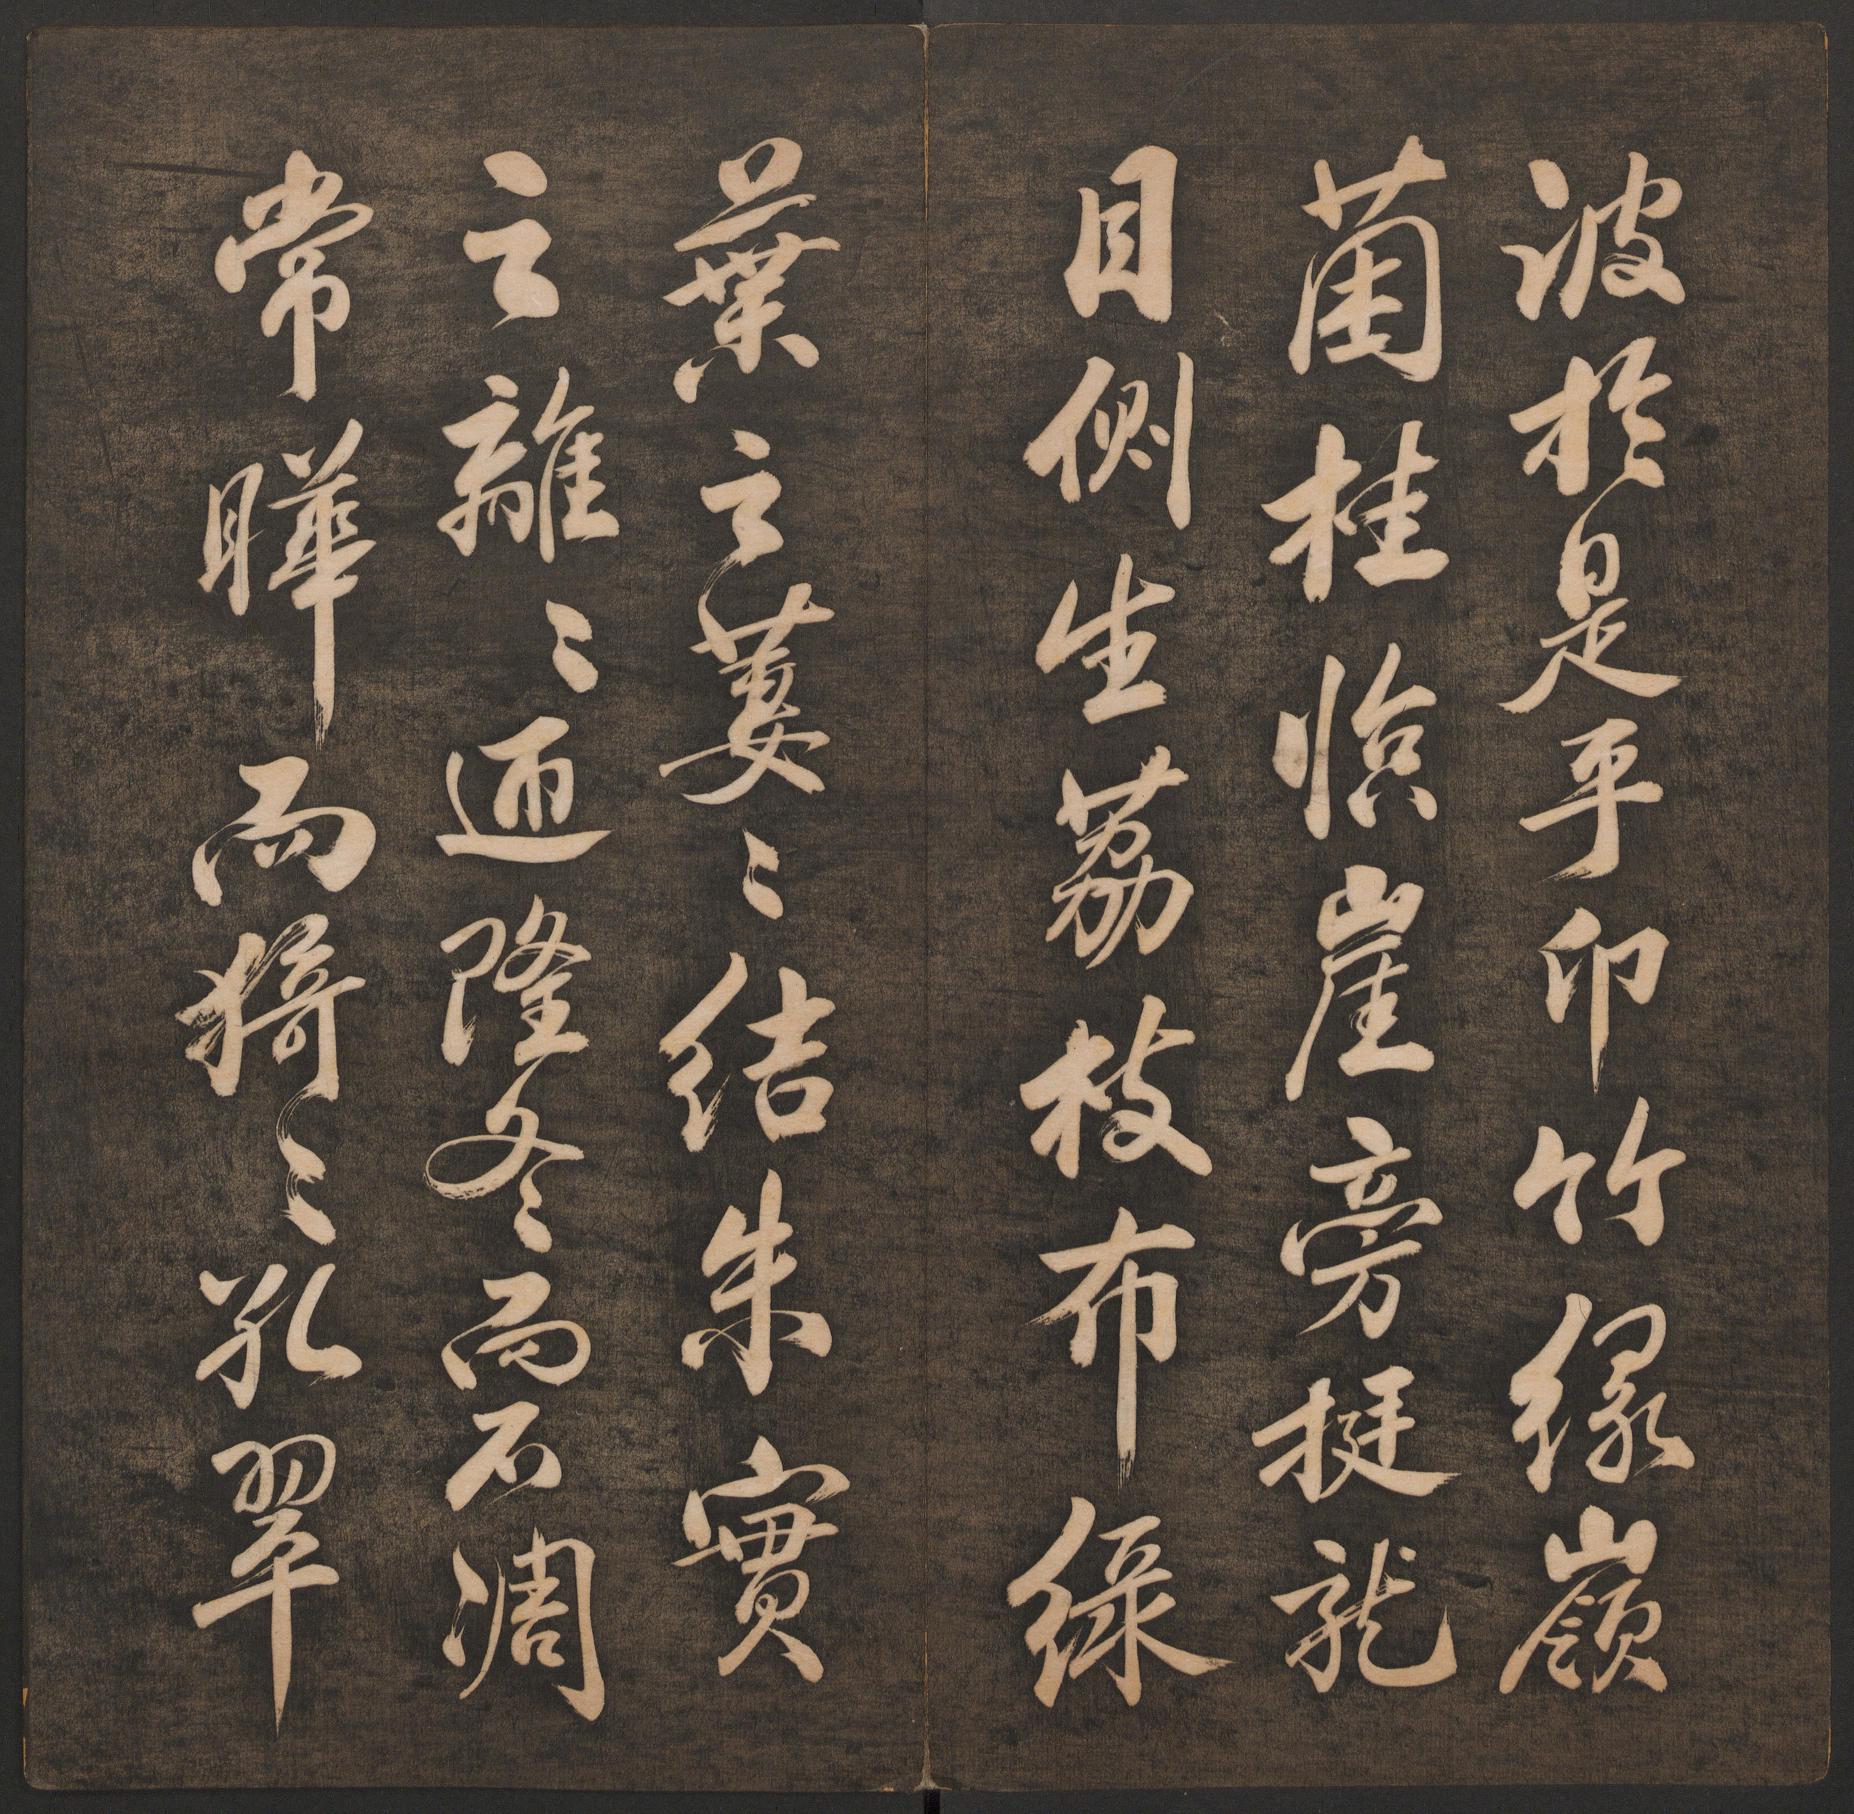 波於是乎卭竹緣嶺
菌桂臨崖旁挺龍
目側生荔枝布綠
葉之萋〻結朱實
之離〻迊隆冬而不凋
常曄而猗〻孔翠